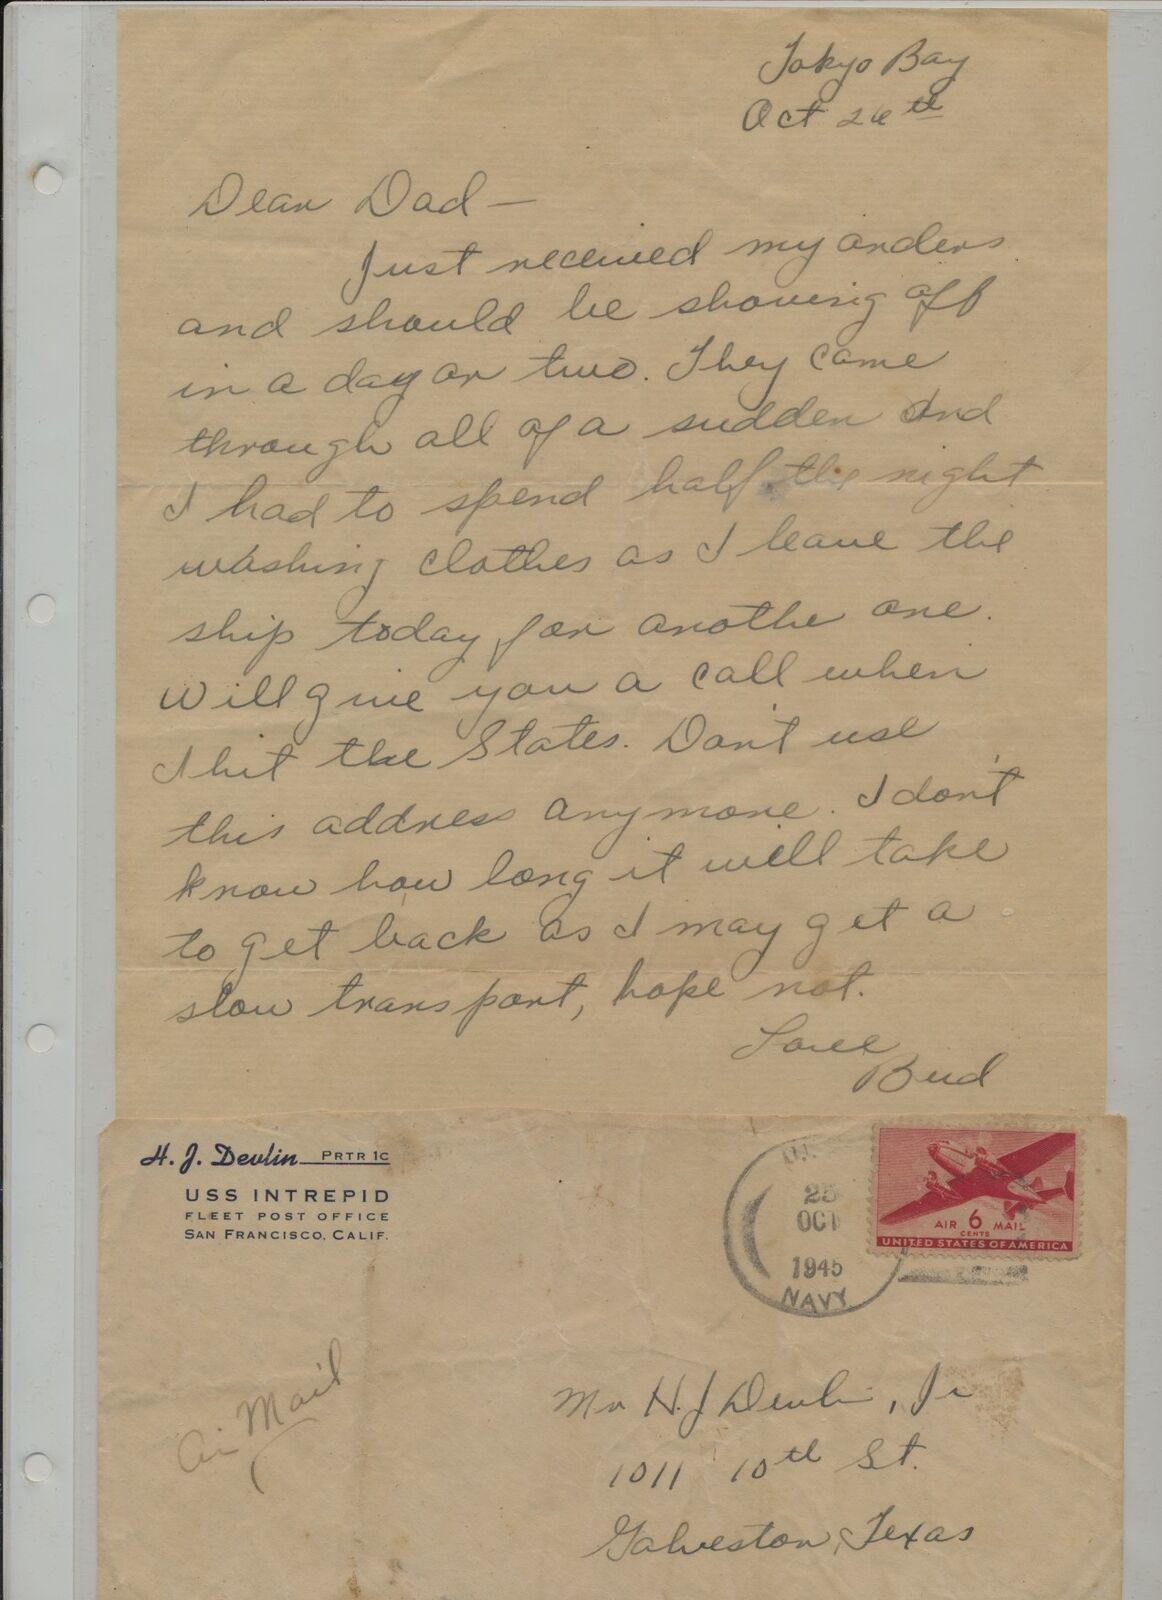 Tokyo Bay
Oct 26th
Dear Dad —
Just received my orders
and should be shoving off
in a day or two. They came
through all of a sudden and
I had to spend half the night
washing clothes as I leave the
ship today for anothe one.
Will give you a call when
I hit the States. Don't use
this address anymore. I don't
know how long it will take
to get back as I may get a
slow transport, hope not.
Love
Bud
H. J. Devlin PRTR 1C
USS INTREPID
FLEET POST OFFICE
SAN FRANCISCO, CALIF.
25
OCT
1945
NAVY
AIR 6 MAIL
CENTS
UNITED STATES OF AMERICA
Air Mail
Mr H.J Devlin, Jr
1011 10th St.
Galveston, Texas